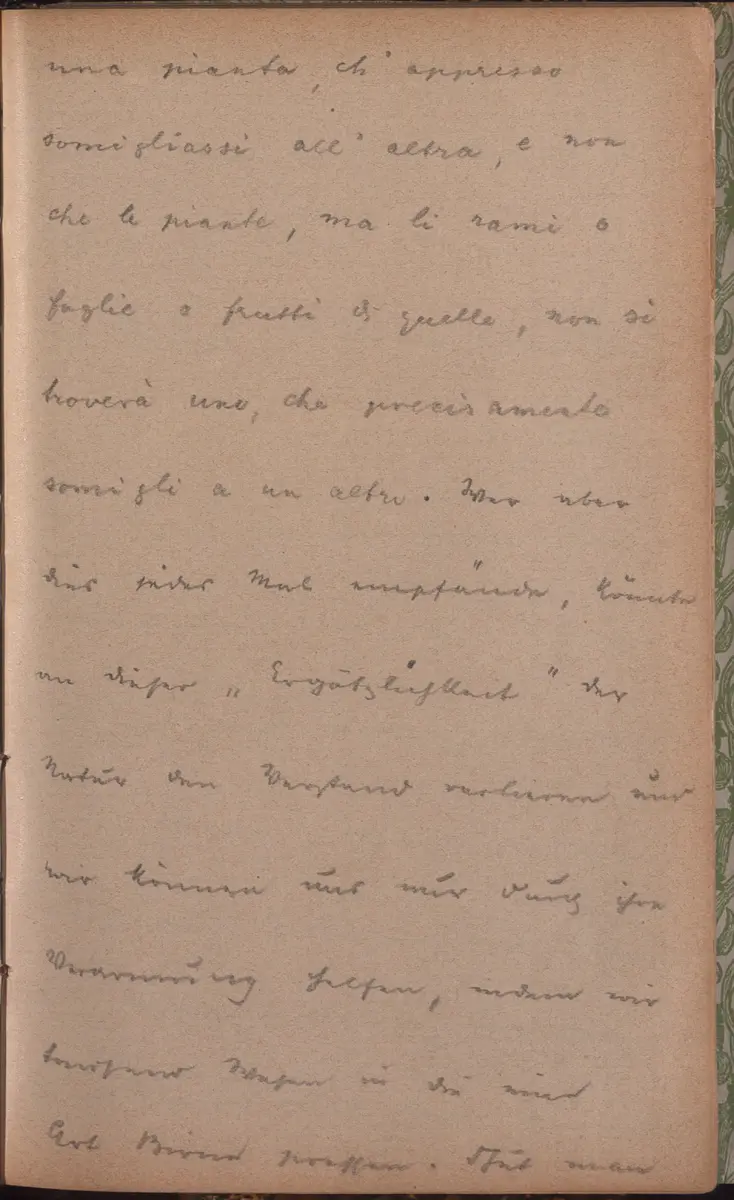 una pianta, ch' appresso
somigliassi all' altra, e non
che le piante, ma li rami o
foglie o frutti di quelle, non si
troverà uno, che precisamente
somigli a un altro. Wer aber
dies jedes Mal empfände, könnte
an dieser „Ergötzlichkeit" der
Natur den Verstand verlieren und
wir können uns nur durch ihre
Verarmung helfen, indem wir
tausend Wesen in die eine
Art Birne pressen. Thut man